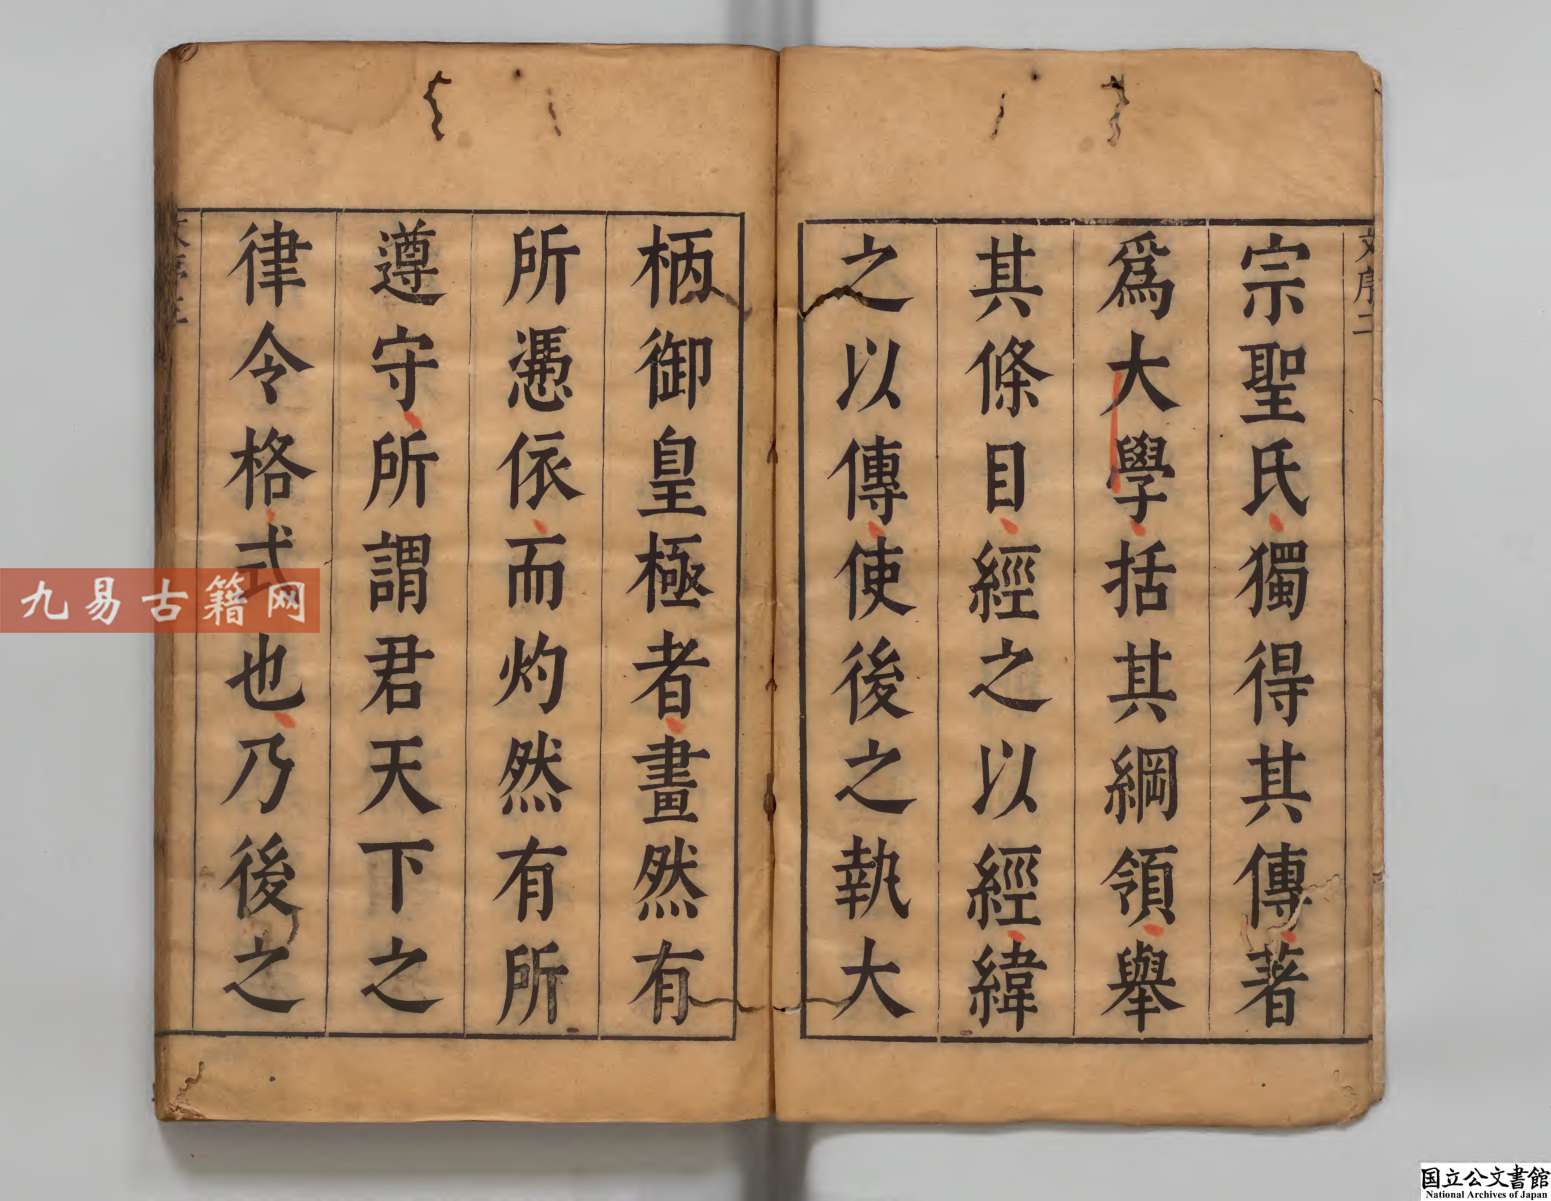 宗聖氏獨得其傳著
爲大學括其綱領舉
其條目經之以經緯
之以傳使後之執大
柄御皇極者畫然有
所憑依而灼然有所
遵守所謂君天下之
律令格式也乃後之
序二
九易古籍网
国立公文書館
National Archives of Japan